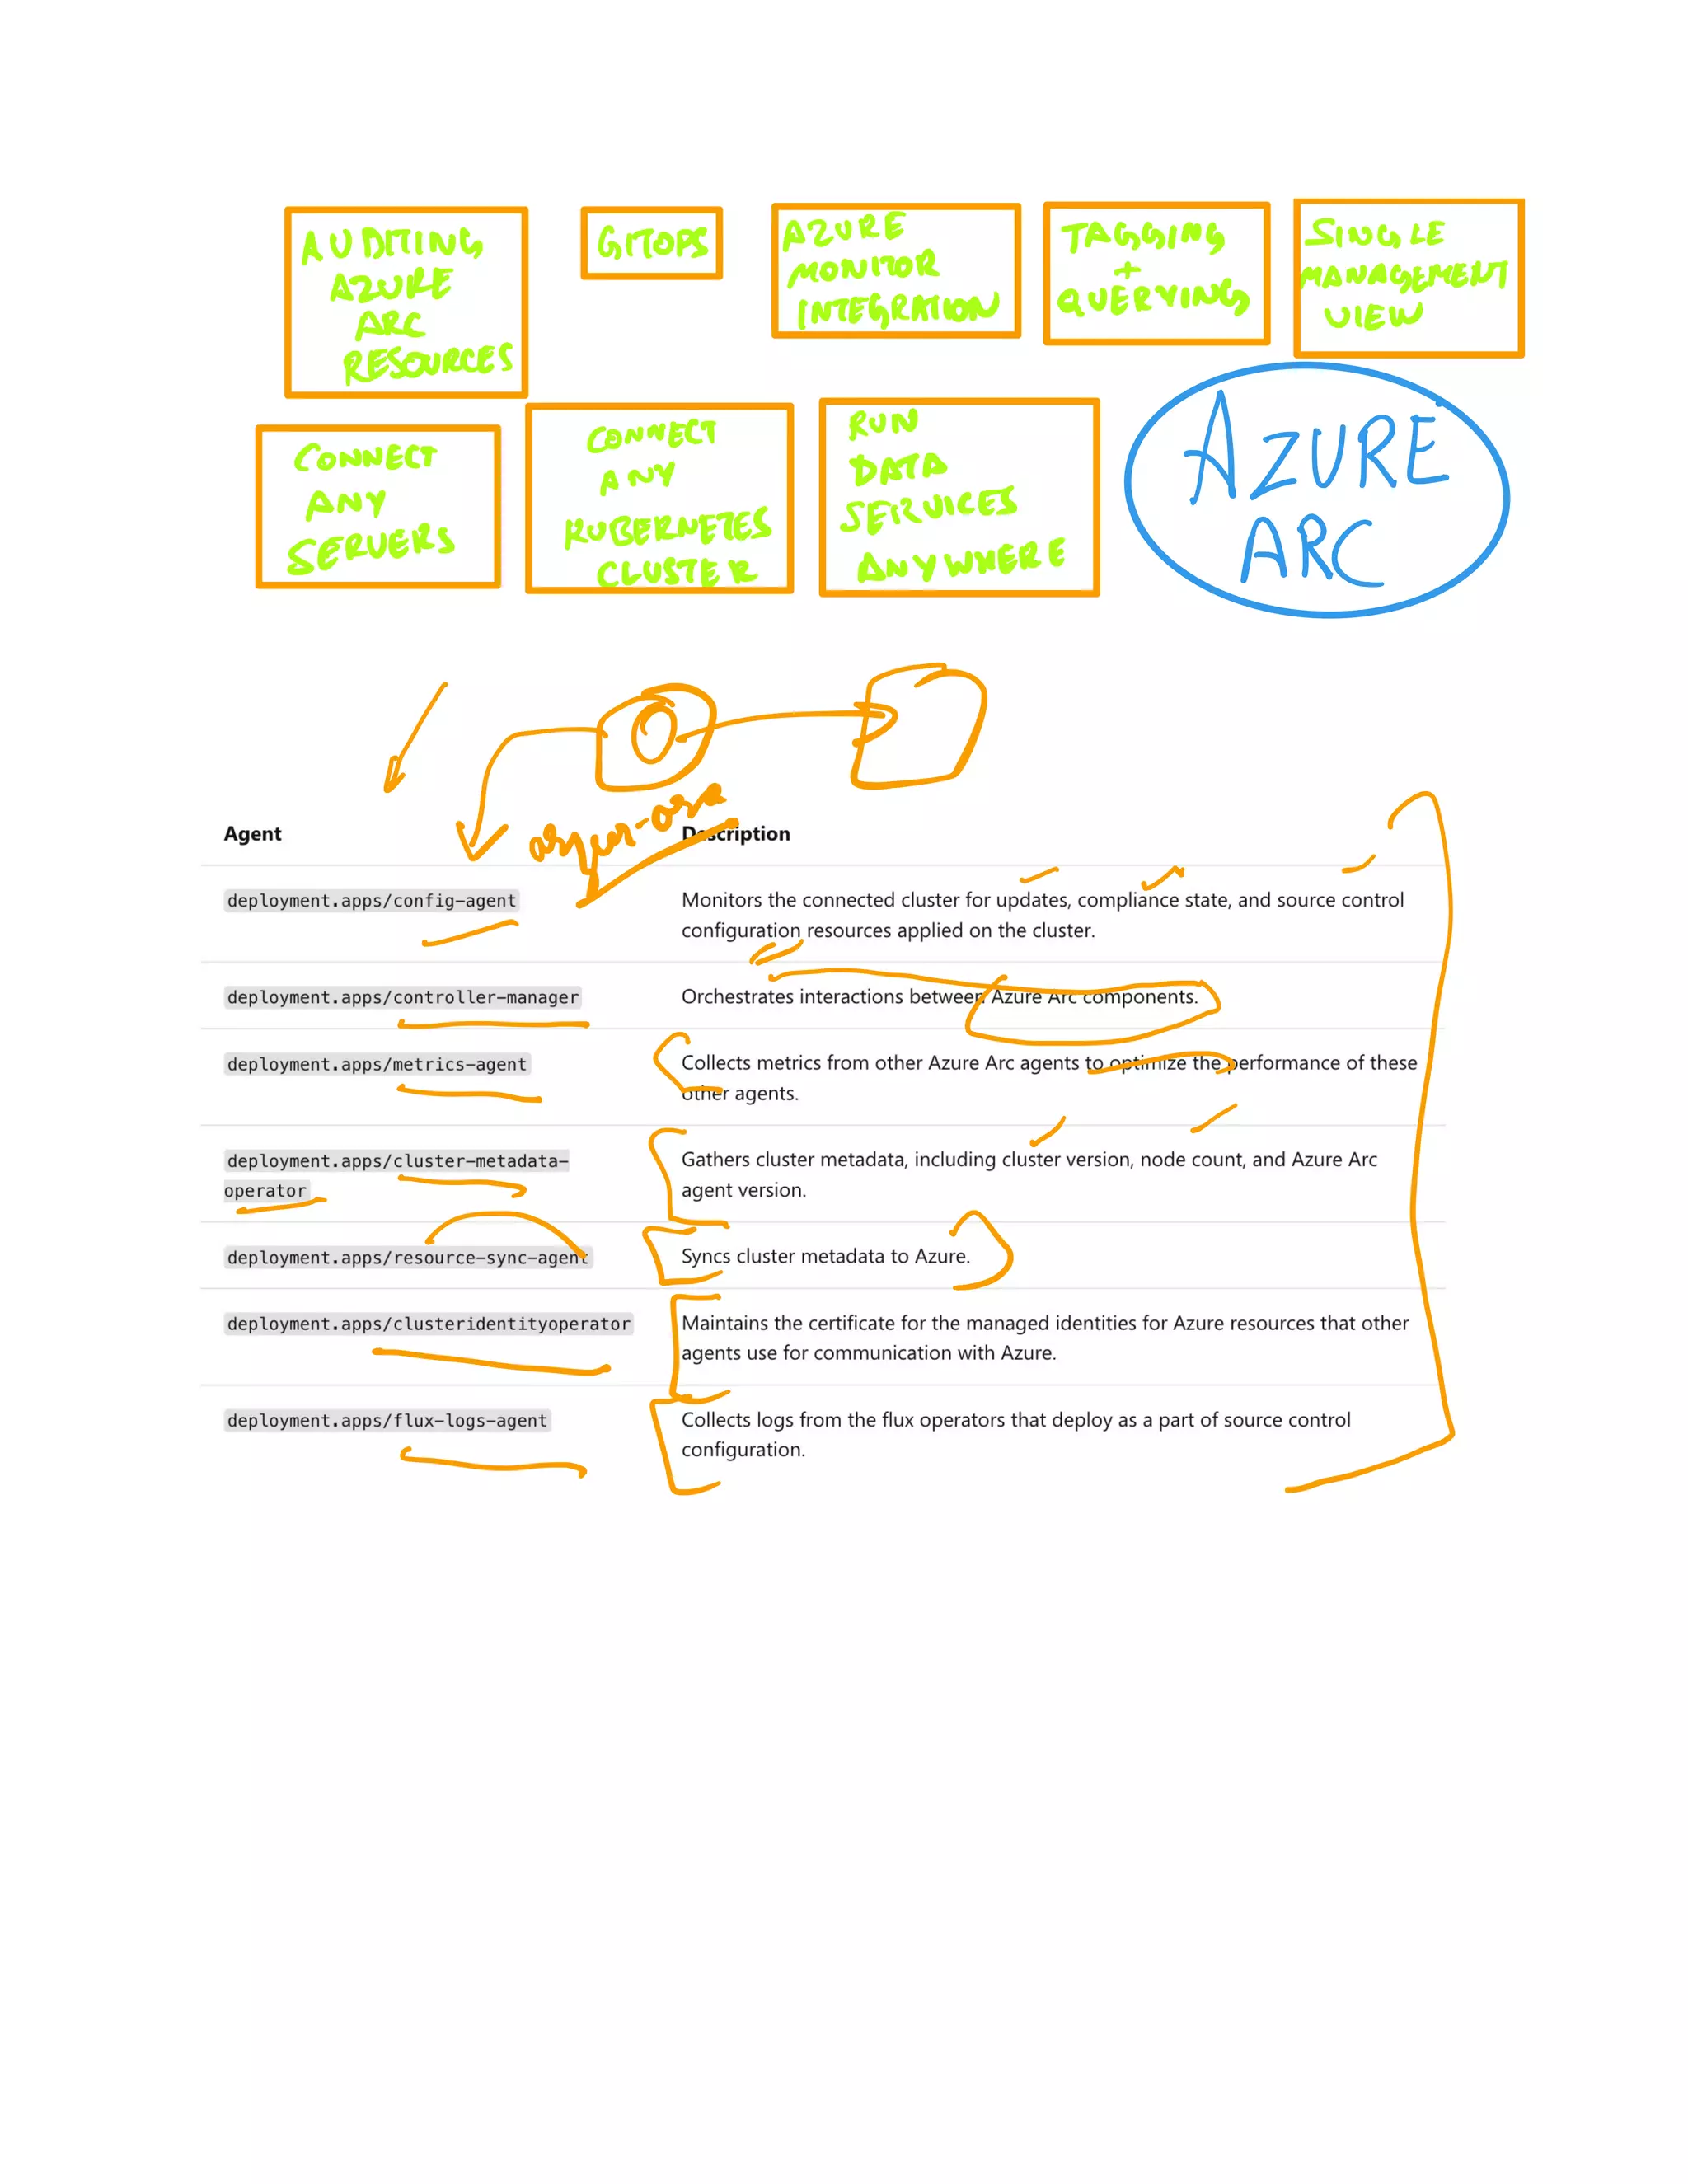 AUDITING
AZURE
ARC
RESOURCES
GITOPS
AZURE
MONITOR
INTEGRATION
TAGGING
+
QUERYING
SINGLE
MANAGEMENT
VIEW
CONNECT
ANY
SERVERS
CONNECT
ANY
KUBERNETES
CLUSTER
RUN
DATA
SERVICES
ANYWHERE
AZURE
ARC
Agent Description
deployment.apps/config-agent Monitors the connected cluster for updates, compliance state, and source control
configuration resources applied on the cluster.
deployment.apps/controller-manager Orchestrates interactions between Azure Arc components.
deployment.apps/metrics-agent Collects metrics from other Azure Arc agents to optimize the performance of these
other agents.
deployment.apps/cluster-metadata- Gathers cluster metadata, including cluster version, node count, and Azure Arc
operator agent version.
deployment.apps/resource-sync-agent Syncs cluster metadata to Azure.
deployment.apps/clusteridentityoperator Maintains the certificate for the managed identities for Azure resources that other
agents use for communication with Azure.
deployment.apps/flux-logs-agent Collects logs from the flux operators that deploy as a part of source control
configuration.